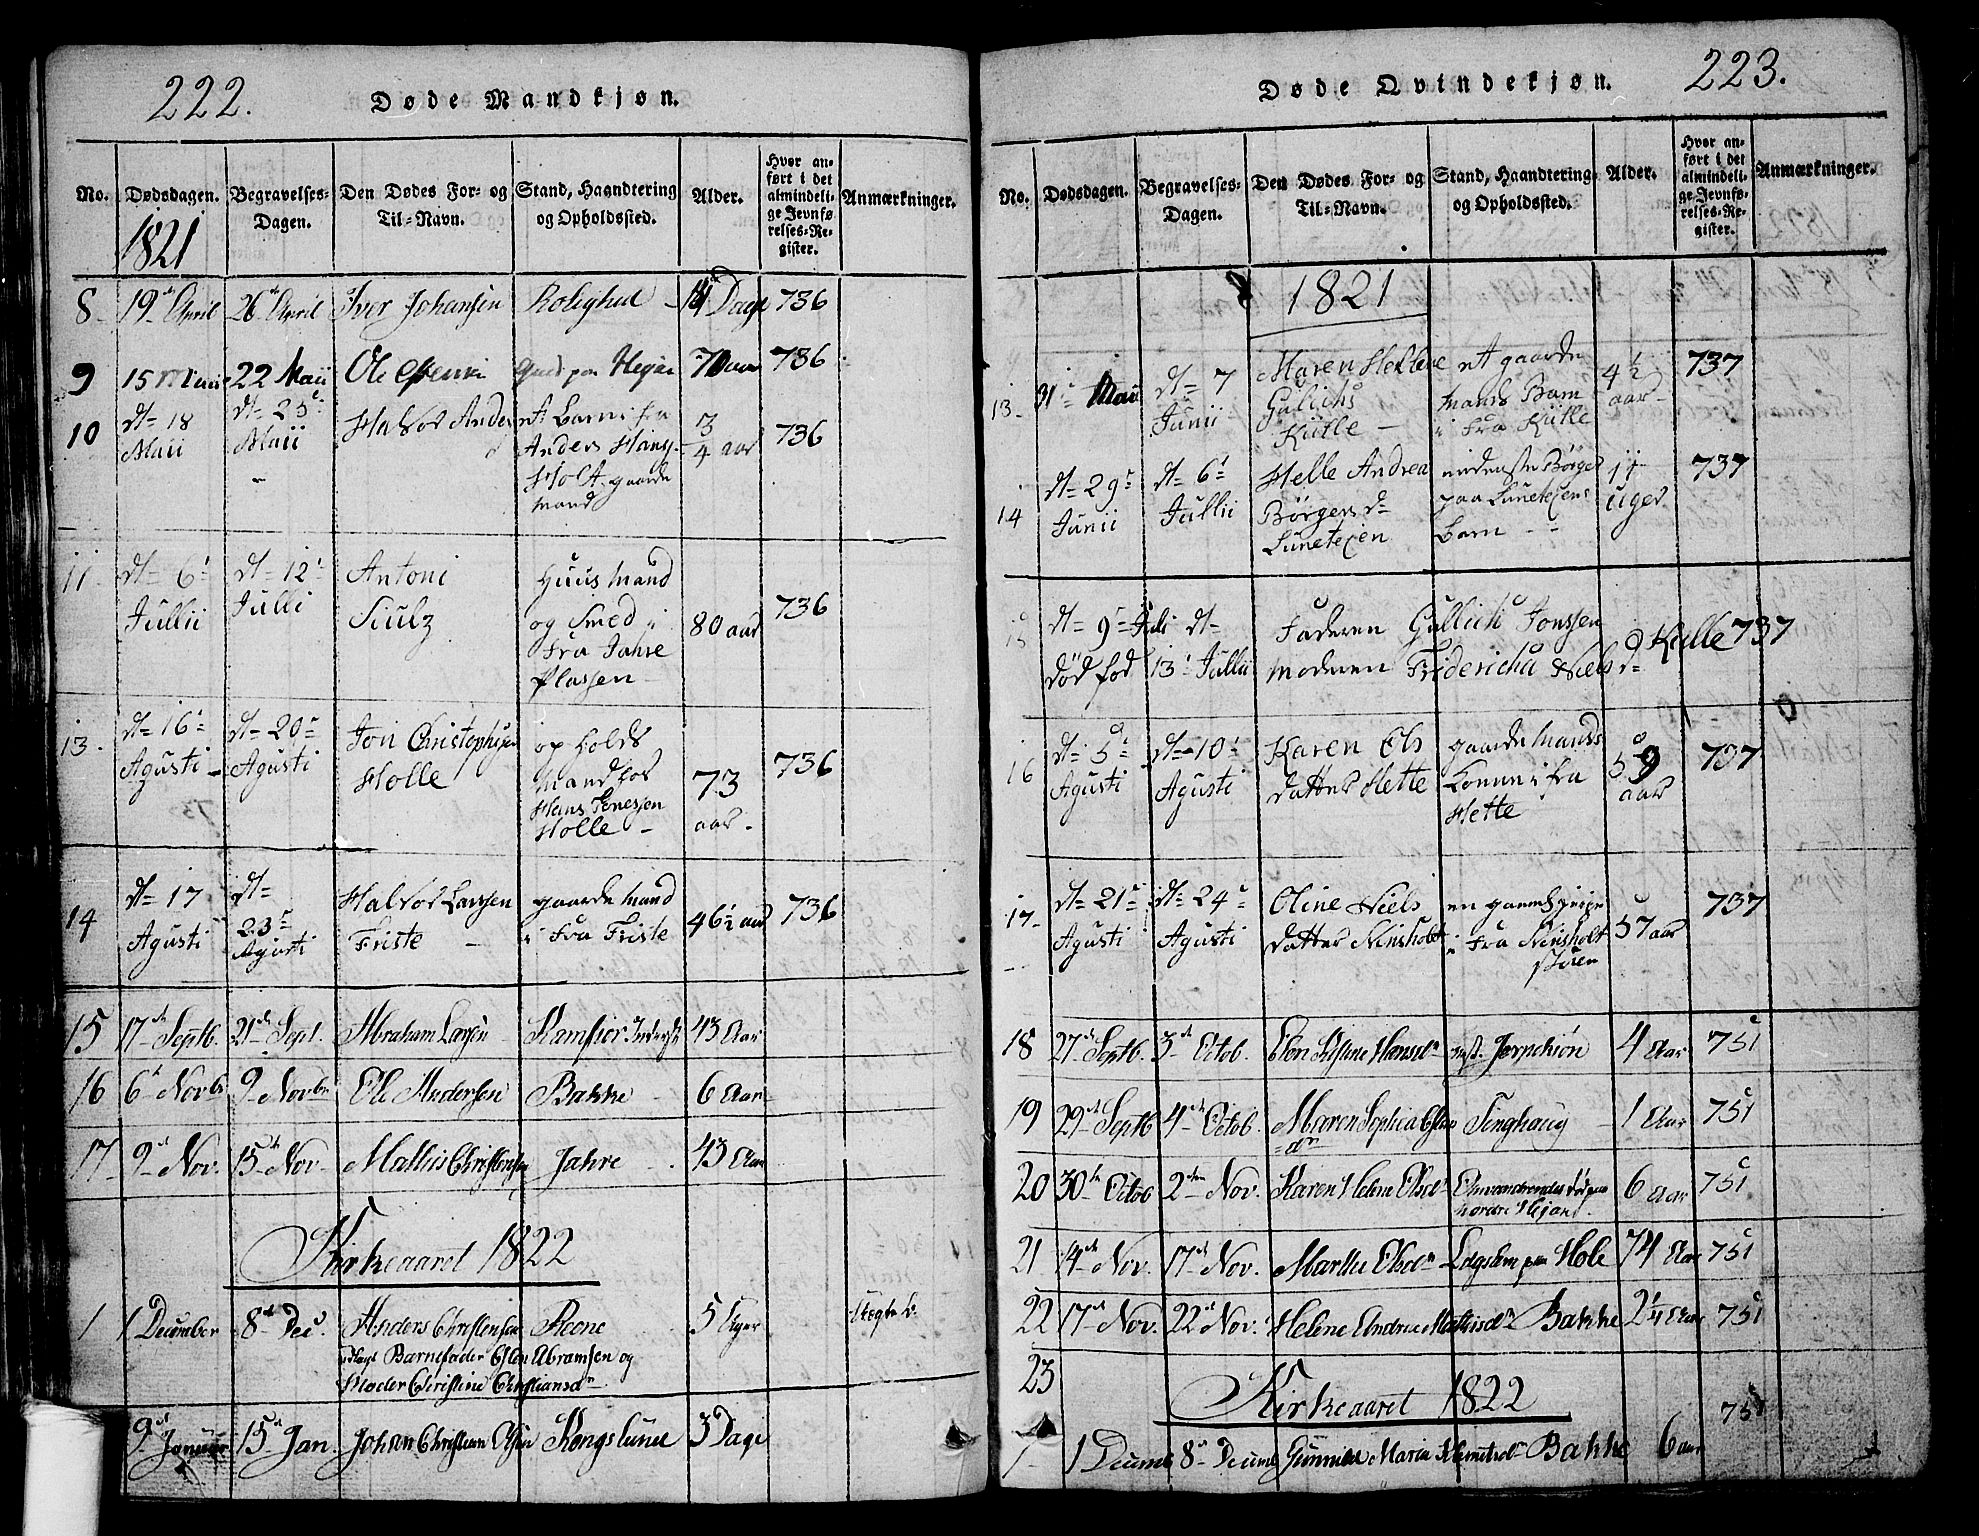 222.
Døde Mandkjøn.
No. Dødsdagen. Begravelses-Dagen. Den Dødes For- og Til-Navn. Stand, Haandtering og Opholdssted. Alder. Hvor anført i det almindelige Jevnførelses-Register. Anmærkninger.
1821
8 19 April 26 April Iver Johansen Rolighed 14 Dage 736
9 15 Maii 22 Maii Ole 70 aar 736
10 dt= 18 Maii dt= 25 Maii Halvor Ander et Barn i fra Anders Hans Holt gaarde mand 3/4 aar 736
11 dt= 6 Jullii dt= 12 Julli Antoni Sculz Huus Mand og Smed i fra Jahre Plassen 80 aar 736
13 dt= 16 Agusti dt= 20 Agusti Jon Christophsen Holle op holds Mand hos Hans Holle 73 aar 736
14 dt= 17 Agusti dt= 23 Agusti Halvor Larssen Friste gaarde Mand i fra Friste 46½ aar 736
15 17 Septb. 21 Sept. Abraham Larsen Kamfior 43 Aar
16 6 Novb 9 Novbr Ole Andersen Bakke 6 Aar
17 9 Nov. 15 Nov Mathis Christensen Jahre 43 Aar
Kirkeaaret 1822
1 1 December 8 Dec. Anders Christensen Reene 5 Uger
Barnefader Esten Abramsen og
Moder Christine Christiansdn
9 Januar 15 Jan. Johan Christian Olsen Kongslund 3 Dage
223.
Døde Qvindekjøn.
No. Dødsdagen. Begravelses-Dagen. Den Dødes For- og Til-Navn. Stand, Haandtering og Opholdssted. Alder. Hvor anført i det almindelige Jevnførelses-Register. Anmærkninger.
1821
13 31 Maii dt= 7 Junii Maren Hellene Gulichs Kulle et gaarde mands Barn i fra Kulle 4½ aar 737
14 dt= 29 Junii dt= 6 Jullii Helle Andrea Børgers d= Lunetejen Børger paa Lunetejens Barn 11 uger 737
15 dt= 9 Juli død fød dt= 13 Jullii Faderen Gullich Jonssen moderen Fridericha Niels d= Kulle 737
16 dt= 5 Agusti dt= 10 Agusti Karen Ols datter Hette gaarde Mands Konne i fra Hette 59 aar 737
17 dt= 21 Agusti dt= 24 Agusti Oline Niels datter Ninsholt en gammel pige i fra Ninsholt 57 aar 737
18 27 Septb. 3 Octob. Elen Kistine Hansdn 4 Aar 751
19 29 Septb 4 Octob. Maren Sophia dn Tinghaug 1 Aar 751
20 30 Octob 2 Nov. Karen Helene Olsd Omvandrendes 6 Aar 751
21 14 Nov. 17 Nov. Marthe Olsdn Lægslem paa Hole 74 Aar 751
22 17 Nov. 22 Nov. Helene Andrea Mathisdn Bakke 2¼ Aar 751
23
Kirkeaaret 1822
1 1 Decemb 8 Decemb Gunnild Maria Bakke 6 aar 751